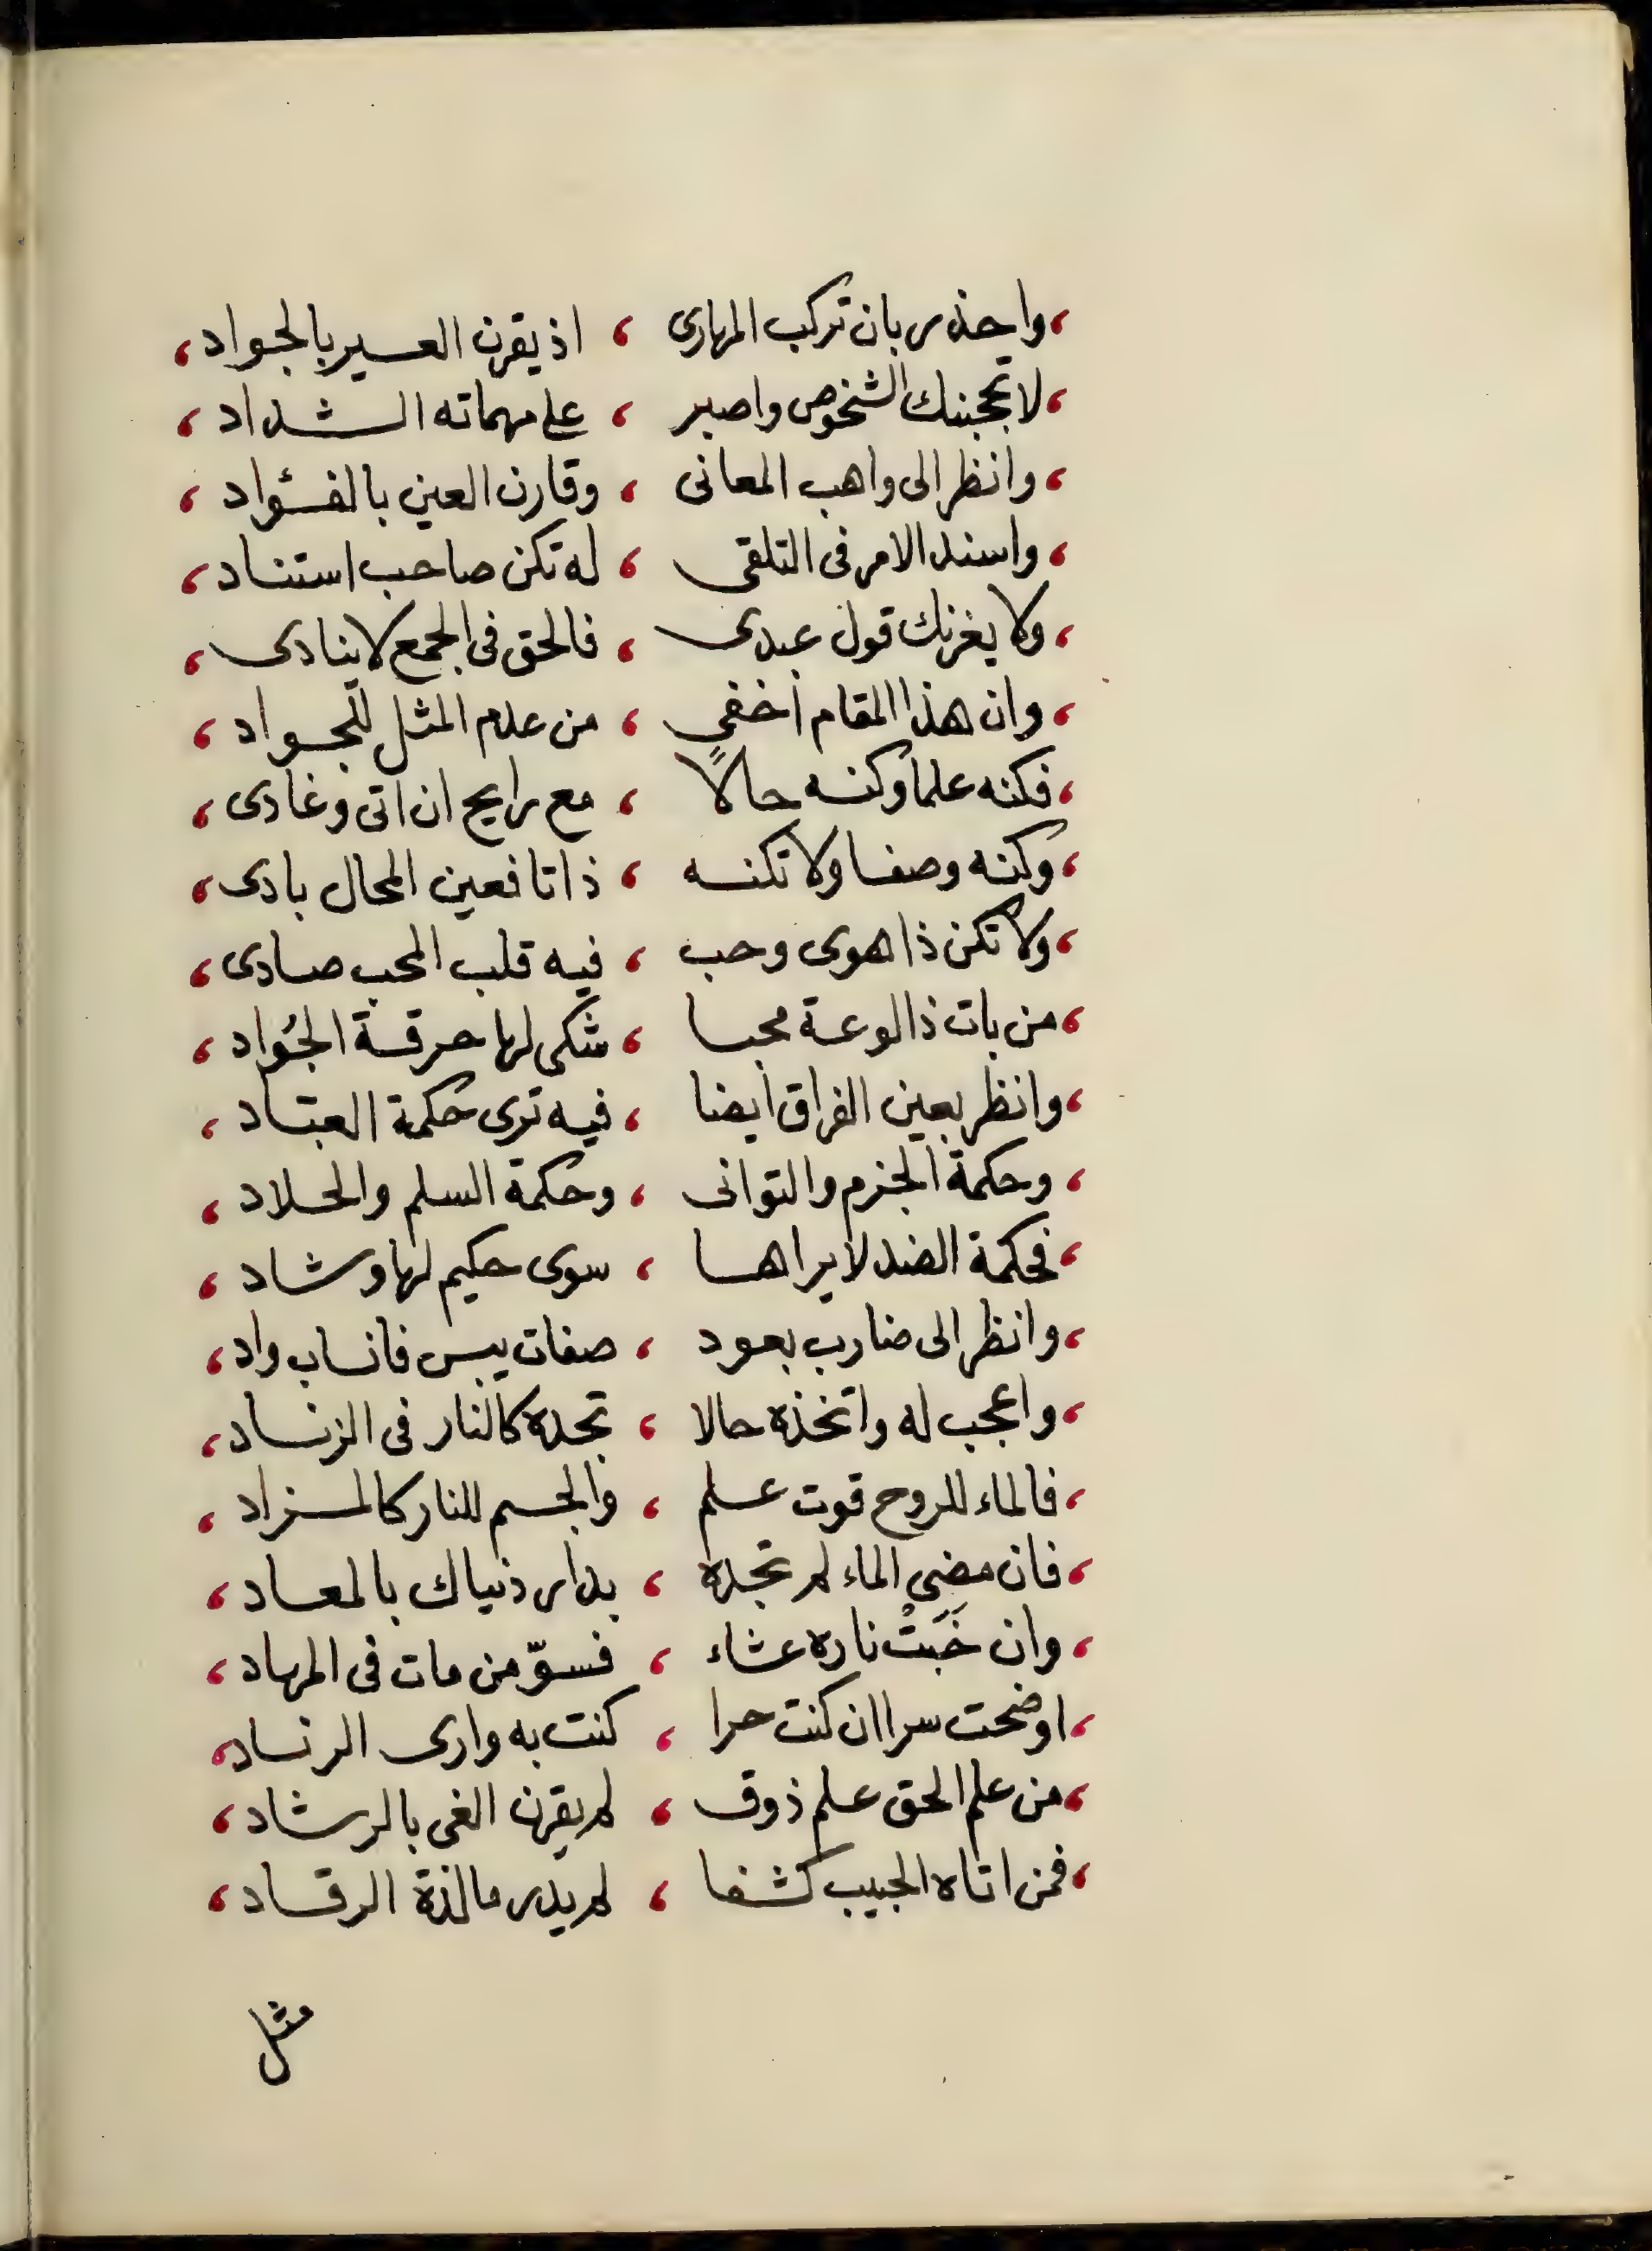 ،واحذر بان تركب المهارى ، اذ يقرن العسير بالجواد،
،لا تحجبنك الشخوص واصبر ، على مهماته الشداد ،
، وانظر الى واهب المعانى ، وقارن العين بالفؤاد ،
، واسند الامر فى التلقى ، له تكن صاحب استناد ،
، ولا يغرنك قول عبدى ، فالحق فى الجمع لا ينادى ،
، وان هذا المقام أخفى ، من عدم المثل للجواد ،
،فكنه علما وكنه حالاً ، مع رايح ان اتى وغادى ،
،وكنه وصفا ولا تكنه ، ذاتا فعين المحال بادى ،
،ولا تكن ذا هوى وحب ، فيه قلب المحب صادى ،
،من بات ذا لوعة محبا ، شكى لها حرقة الجُواد ،
،وانظر بعين الفراق أيضا ، فيه ترى حكمة العباد ،
، وحكمة الجزم والتوانى ، وحكمة السلم والجلاد ،
،فحكمة الضد لا يراها ، سوى حكيم لها وشاد ،
،وانظر الى ضارب بعود ، صفات يبس فانساب واد ،
،واعجب له واتخذه حالا ، تجده كالنار فى الزناد ،
،فالماء للروح قوت علم ، والجسم للنار كالمزاد ،
،فان مضى الماء لم تجده ، بدار دنياك بالمعاد ،
، وان خَبَتْ ناره عشاء ، فسوّ من مات فى المهاد ،
،اوضحت سرا ان كنت حرا ، كنت به وارى الزناد،
،من علم الحق علم ذوق ، لم يقرن الغى بالرشاد ،
،فمن اتاه الحبيب كشفا ، لم يدر ما لذة الرقاد ،
مثل